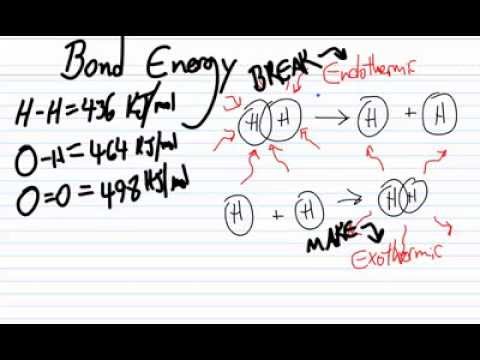 Bond Energy
H-H = 436 KJ/mol
O-H = 464 KJ/mol
O=O = 498 KJ/mol
BREAK
Endothermic
H H → H + H
H + H → H H
MAKE
Exothermic